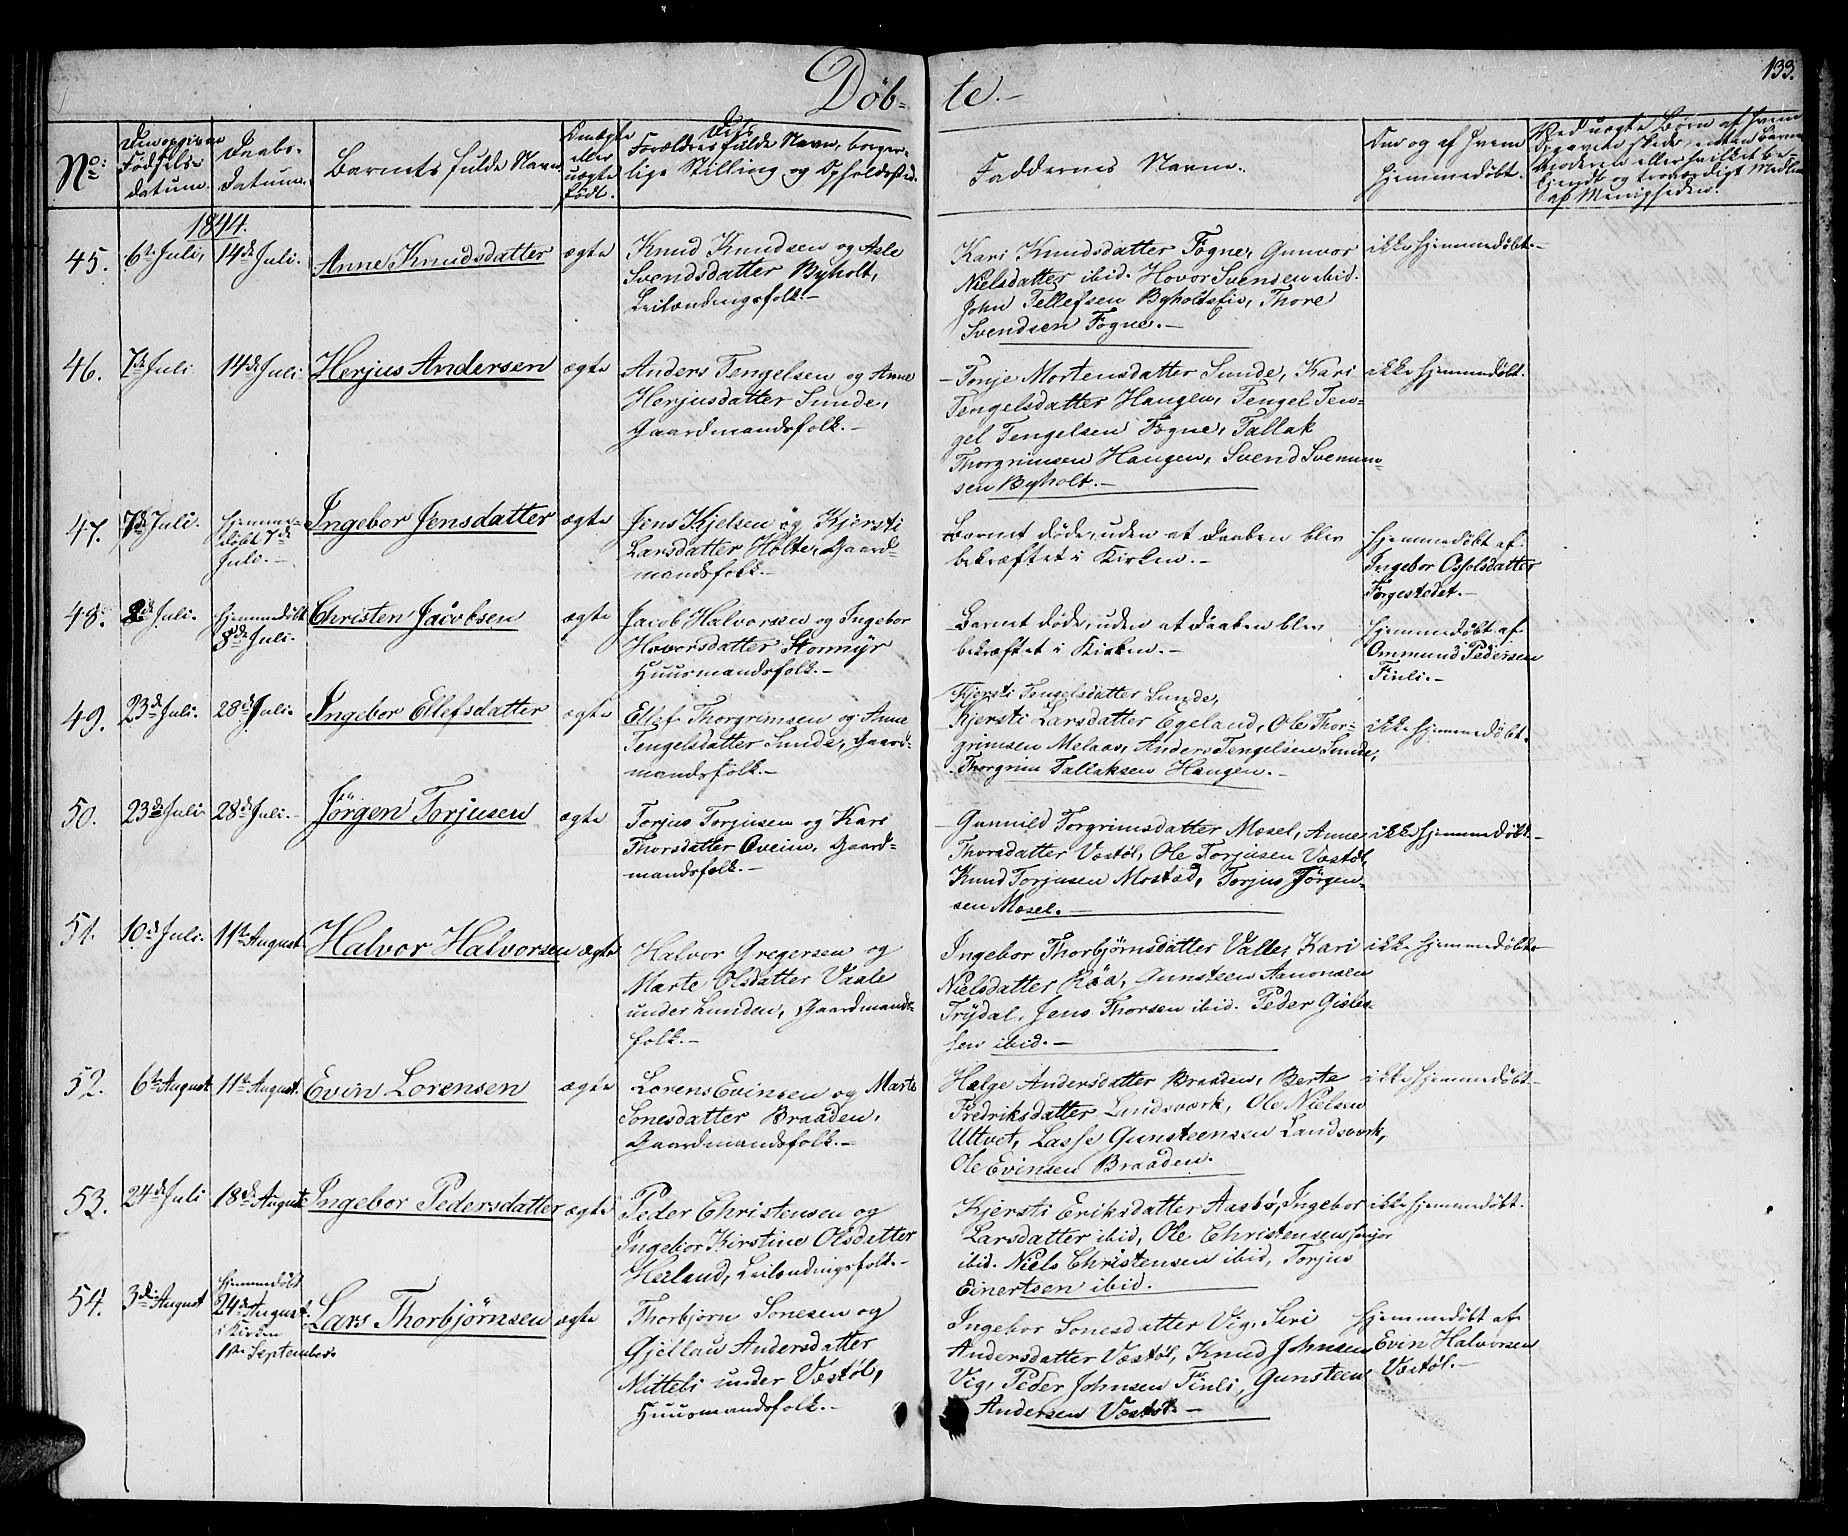 Døb-
te.-
133.
No:
Den opgivne
Fødsels-
datum.
Daabs-
datum.
Barnets fulde Navn
Om ægte
eller
uægte
født.
Dets
Forældres fulde Navn, borger-
lige Stilling og Opholdssted.
Faddernes Navne.
Om og af hvem
hjemmedøbt.
Ved uægte Børn af hvem
Opgaven skede, enten Barne-
Moderen eller hvilket be-
kjendt og troværdigt Medlem
af Menigheden.
1844.
45. 6te Juli, 14de Juli. Anne Knudsdatter ægte
Knud Knudsen og Asle
Svendsdatter Byholt,
Leilændingsfolk.-
Kari Knudsdatter Fogne, Gunvor
Nielsdatter ibid. Hovor Svendsen ibid.
John Tellefsen Byholtslie, Thore
Svendsen Fogne.-
ikke hjemmedøbt.-
46. 7de Juli 14de Juli Herjus Andersen ægte
Anders Tengelsen og Anne
Herjusdatter Sunde,
Gaardmandsfolk.-
- Tonje Mortensdatter Sunde, Kari
Tengelsdatter Haugen, Tengel Ten-
gel Tengelsen Fogne, Tallak
Thorgrimsen Haugen, Svend Svenum-
sen Byholt.-
ikke hjemmedøbt.
47. 7de Juli. Hjemme-
døbt 7de
Juli.-
Ingebor Jensdatter ægte
Jens Kjelsen og Kjersti
Larsdatter Holte, Gaard-
mandsfolk.-
Barnet døde, uden at Daaben blev
bekræftet i Kirken.-
Hjemmedøbt af
Ingebor Osholsdatter
Torgestedet.-
48. 8de Juli. Hjemmedøbt
8de Juli.
Christen Jacobsen ægte
Jacob Halvorsen og Ingebor
Hovorsdatter Stormyr
Huusmandsfolk.-
Barnet døde, uden at Daaben blev
bekræftet i Kirken.-
Hjemmedøbt af
Ommund Pedersen
Finli.-
49. 23de Juli. 28de Juli. Ingebor Ellefsdatter ægte
Ellef Thorgrimsen og Anne
Tengelsdatter Sunde, Gaard-
mandsfolk.-
Kjersti Tengelsdatter Sunde,
Kjersti Larsdatter Egeland, Ole Thor-
grimsen Melaas, Anders Tengelsen Sunde,
Thorgrim Tallaksen Haugen.-
ikke hjemmedøbt.
50. 23de Juli 28de Juli.- Jörgen Torjusen ægte
Torjus Torjusen og Kari
Thorsdatter Qveim, Gaard-
mandsfolk.-
- Gunnild Torgrimsdatter Mosel, Anne
Thorsdatter Væstøl, Ole Torjusen Væstøl,
Knud Torjusen Mostad, Torjus Jörgen-
sen Mosel.-
ikke hjemmedøbt.-
51. 10de Juli. 11te August Halvor Halvorsen ægte
Halvor Gregersen og
Marte Olsdatter Vaale
under Lunden, Gaardmands-
folk.-
Ingebor Thorbjørnsdatter Valle, Kari
Nielsdatter Röa, Gunsteen Aanonsen
Trydal, Jens Thorsen ibid. Peder Gisle-
sen ibid.-
ikke hjemmedøbt.-
52. 6te August 11te August. Evin Lorensen ægte
Lorens Evinsen og Marte
Sonesdatter Braaden,
Gaardmandsfolk.-
Helge Andersdatter Braaden, Berte
Fredriksdatter Lundsværk, Ole Nielsen
Ultvet, Lasse Gunsteensen Landsværk,
Ole Evinsen Braaden.
ikke hjemmedøbt.-
53. 24de Juli 18de August Ingebor Pedersdatter ægte
Peder Christensen og
Ingebor Kirstine Olsdatter
Heiland, Leilændingsfolk.-
Kjersti Eriksdatter Aasbø, Ingebor
Larsdatter ibid, Ole Christensen senjor
ibid. Niels Christensen ibid, Torjus
Einertsen ibid.
ikke hjemmedøbt.
54. 3die August
Hjemmedøbt
24de August
i Kirken
1ste September.
Lars Thorbjørnsen ægte
Thorbjørn Sonesen og
Gjellau Andersdatter
Mittebi under Væstøl,
Huusmandsfolk.-
Ingebor Sonesdatter Vig, Siri
Andersdatter Væstøl, Knud Johnsen
Vig, Peder Johnsen Finli, Gunsteen
Andersen Væstøl.-
Hjemmedøbt af
Evin Halvorsen
Væstøl.-